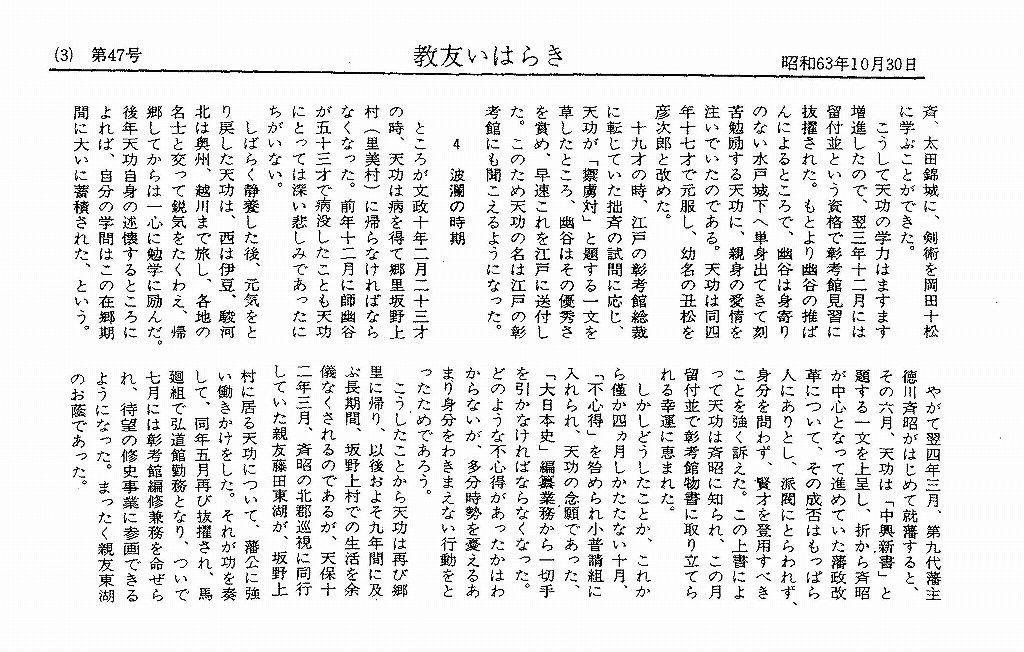 (3) 第47号
教友いはらき
昭和63年10月30日
斉、太田錦城に、剣術を岡田十松
に学ぶことができた。
こうして天功の学力はますます
増進したので、翌三年十二月には
留付並という資格で彰考館見習に
抜擢された。もとより幽谷の推ば
んによるところで、幽谷は身寄り
のない水戸城下へ単身出てきて刻
苦勉励する天功に、親身の愛情を
注いでいたのである。天功は同四
年十七才で元服し、幼名の丑松を
彦次郎と改めた。
十九才の時、江戸の彰考館総裁
に転じていた拙斉の試問に応じ、
天功が「禦虜対」と題する一文を
草したところ、幽谷はその優秀さ
を賞め、早速これを江戸に送付し
た。このため天功の名は江戸の彰
考館にも聞こえるようになった。
4 波瀾の時期
ところが文政十年二月二十三才
の時、天功は病を得て郷里坂野上
村(里美村)に帰らなければなら
なくなった。前年十二月に師幽谷
が五十三才で病没したことも天功
にとっては深い悲しみであったに
ちがいない。
しばらく静養した後、元気をと
り戻した天功は、西は伊豆、駿河
北は奥州、越川まで旅し、各地の
名士と交って鋭気をたくわえ、帰
郷してからは一心に勉学に励んだ。
後年天功自身の述懐するところに
よれば、自分の学問はこの在郷期
間に大いに蓄積された、という。
やがて翌四年三月、第九代藩主
徳川斉昭がはじめて就藩すると、
その六月、天功は「中興新書」と
題する一文を上呈し、折から斉昭
が中心となって進めていた藩政改
革について、その成否はもっぱら
人にありとし、派閥にとらわれず、
身分を問わず、賢才を登用すべき
ことを強く訴えた。この上書によ
って天功は斉昭に知られ、この月
留付並で彰考館物書に取り立てら
れる幸運に恵まれた。
しかしどうしたことか、これか
ら僅か四ヵ月しかたたない十月、
「不心得」を咎められ小普請組に
入れられ、天功の念願であった、
「大日本史」編纂業務から一切手
を引かなければならなくなった。
どのような不心得があったかはわ
からないが、多分時勢を憂えるあ
まり身分をわきまえない行動をと
ったためであろう。
こうしたことから天功は再び郷
里に帰り、以後およそ九年間に及
ぶ長期間、坂野上村での生活を余
儀なくされるのであるが、天保十
二年三月、斉昭の北郡巡視に同行
していた親友藤田東湖が、坂野上
村に居る天功について、藩公に強
い働きかけをした。それが功を奏
して、同年五月再び抜擢され、馬
廻組で弘道館勤務となり、ついで
七月には彰考館編修兼務を命ぜら
れ、待望の修史事業に参画できる
ようになった。まったく親友東湖
のお蔭であった。